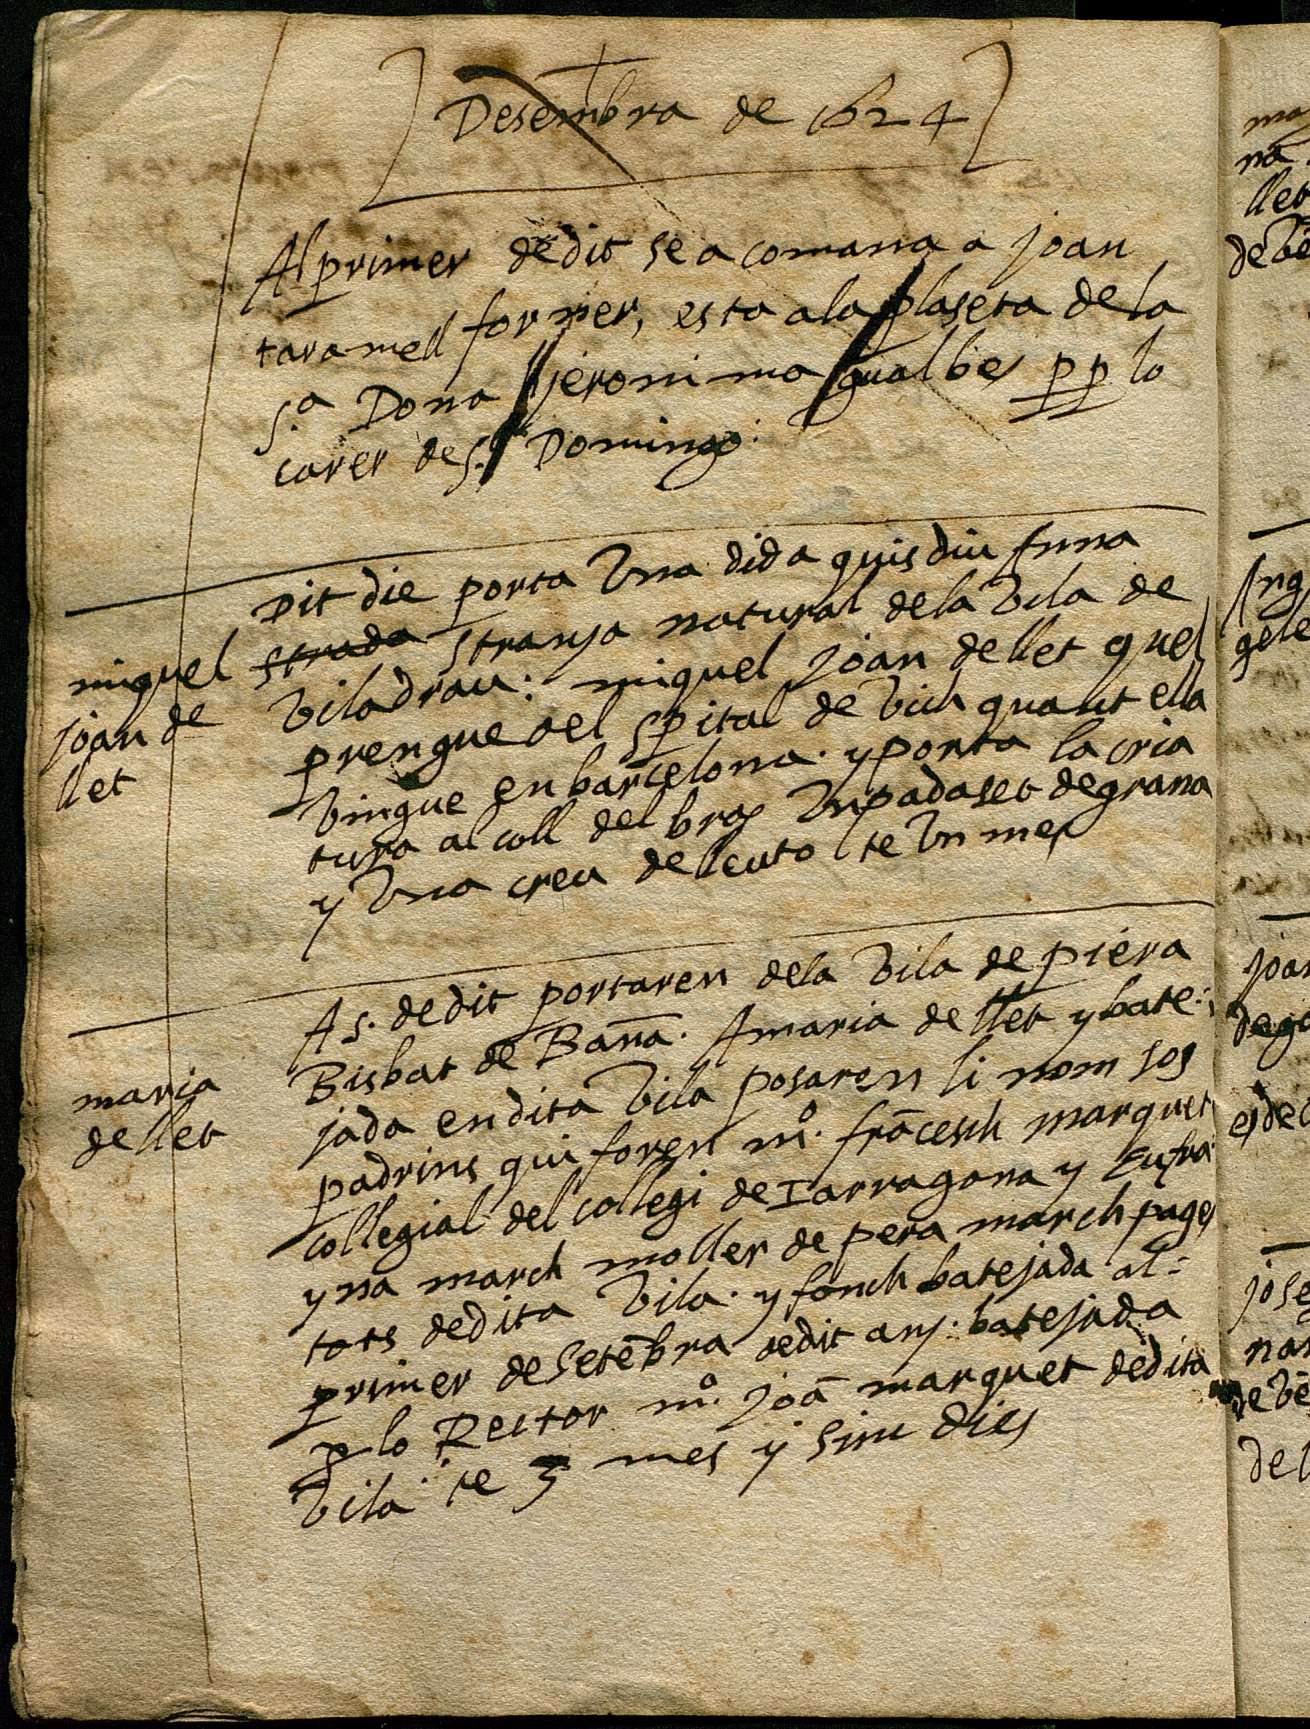 Desembra de 1624
Al primer de dit se a comana a joan
taramell forner, esta a la plaseta de la
S.ª Dona jeronima gualbes pp lo
carer de S.t Domingo.
Dit die porta Vna dida quis diu
strada stranja natural dela Vila de
Viladrau: miquel joan de llet quel
prengue del spital de Vich quant ella
Vingue en barcelona. y porta la cria
tura al coll del bras Vn padaset de grana
y Vna creu de lleuto te Vn mes
miquel
joan de
llet
A 5. de dit portaren dela Vila de piera
Bisbat de Barña. A maria de llet y bate-
jada en dita Vila posaren li nom sos
padrins qui foren mº. frãcesch marquet
collegial del collegi de Tarragona y Eufra
yna march moller de pera march pages
tots de dita Vila. y fonch batejada al-
primer de Setẽbra dedit any. batejada
p lo Rector mº. joã marquet dedita
Vila. te 3 mes y sinc dies
maria
de llet
na
llet
gele
joan
de l